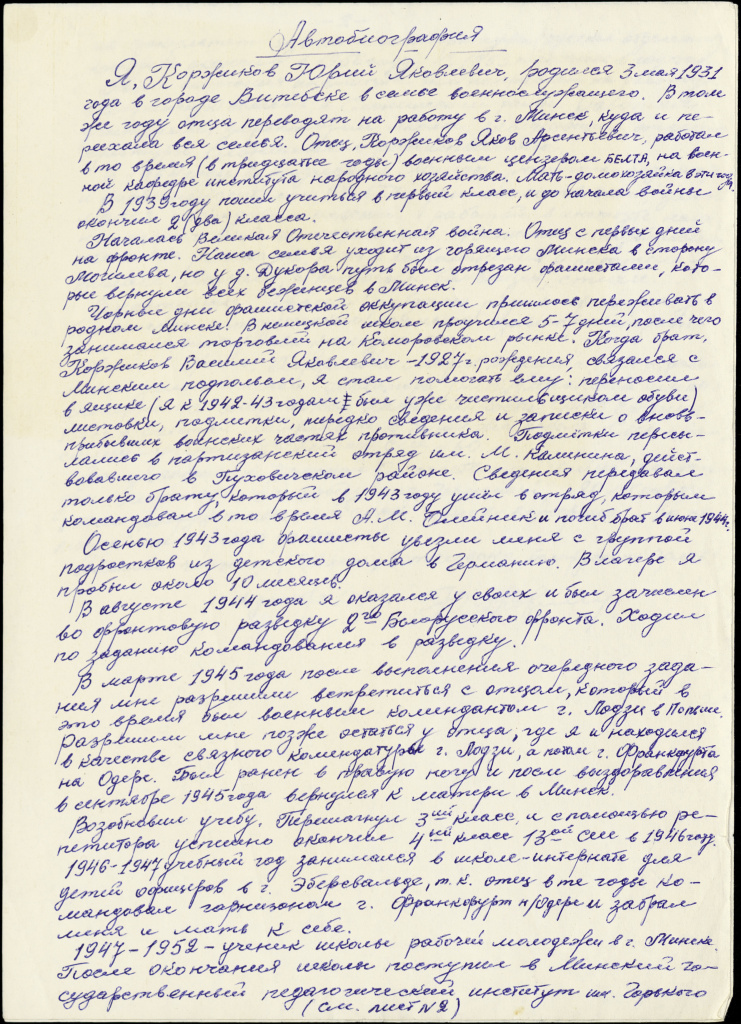 Автобиография
Я, Коржиков Юрий Яковлевич, родился 3 мая 1931
года в городе Витебске в семье военнослужащего. В том
же году отца переводят на работу в г. Минск, куда и пе-
реехала вся семья. Отец, Коржиков Яков Арсентьевич, работал
в то время (в тридцатые годы) военным цензером БЕЛТА, на воен-
ной кафедре института народного хозяйства. Мать-домохозяйка в эти годы.
В 1939 году пошёл учиться в первый класс, и до начала войны
окончил 2 (два) класса.
Началась Великая Отечественная война. Отец с первых дней
на фронте. Наша семья уходит из горящего Минска в сторону
Могилева, но у д. Дукора путь был отрезан фашистами, кото-
рые вернули всех беженцев в Минск.
Чорные дни фашистской оккупации пришлось переживать в
родном Минске. В немецкой школе проучился 5-7 дней, после чего
занимался торговлей на Коморовском рынке. Когда брат,
Коржиков Василий Яковлевич -1927 г. рождения, связался с
Минским подпольем, я стал помогать ему: переносил
в ящике (я к 1942-43 годам был уже чистильщиком обуви)
листовки, подмётки, нередко сведения и записки о вновь-
прибывших воинских частях противника. Подмётки пересы-
лались в партизанский отряд им. М. Калинина, дейст-
вовавшего в Пуховичском районе. Сведения передавал
только брату, который в 1943 году ушёл в отряд, которым
командовал в то время А.М. Олейник и погиб брат в июне 1944 г.
Осенью 1943 года фашисты увезли меня с группой
подростков из детского дома в Германию. В лагере я
пробыл около 10 месяцев.
В августе 1944 года я оказался у своих и был зачислен
во фронтовую разведку 2го Белорусского фронта. Ходил
по заданию командования в разведку.
В марте 1945 года после выполнения очередного зада-
ния мне разрешили встретиться с отцом, который в
это время был военным комендантом г. Лодзи в Польше.
Разрешили мне позже остаться у отца, где я и находился
в качестве связного комендатуры г. Лодзи, а потом г. Франкфурта
на Одере. Был ранен в правую ногу и после выздоравления
в сентябре 1945 года вернулся к матери в Минск.
Возобновил учебу. Перешагнул 3ий класс, и с помощью ре-
петитора успешно окончил 4ый класс 13ой СШ в 1946 году.
1946-1947 учебный год занимался в школе-интернате для
детей офицеров в г. Эберсвальде, т.к. отец в те годы ко-
мандовал гарнизоном г. Франкфурт н/Одере и забрал
меня и мать к себе.
1947-1952 - ученик школы рабочей молодежи в г. Минске.
После окончания школы поступил в Минский го-
сударственный педагогический институт им. Горького
(см. лист №2)